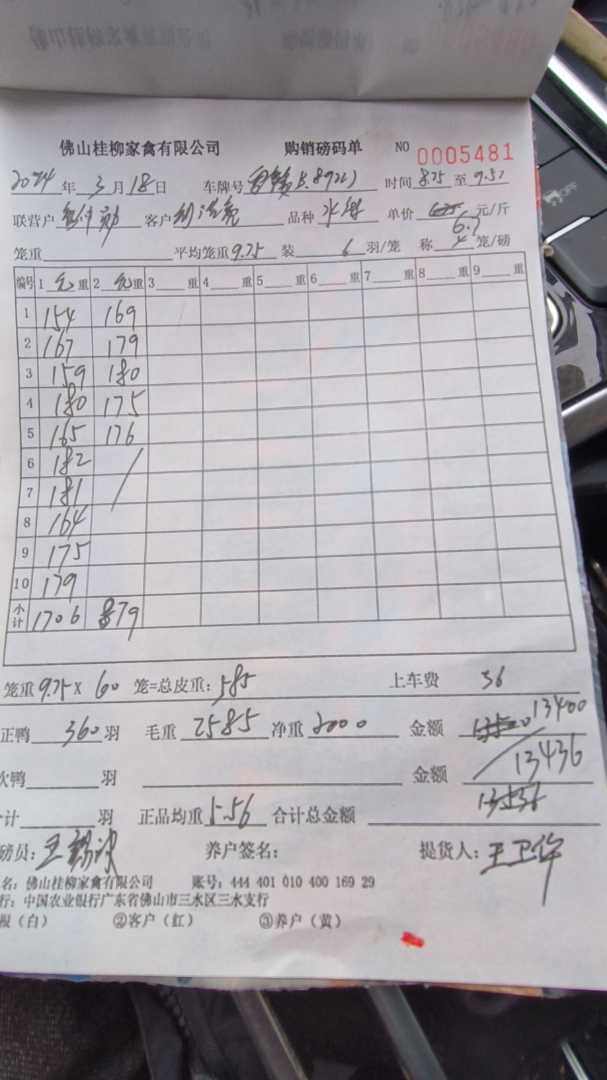 佛山桂柳家禽有限公司 购销磅码单 NO 0005481
2024年 3月18日 车牌号 时间 8:25 至 9:5
联营户 客户 品种 水 单价 6.7 元/斤
笼重 平均笼重 9.75 装 6 羽/笼 称 笼/磅
编号 1 毛 重 2 毛 重 3 重 4 重 5 重 6 重 7 重 8 重 9 重
1 154 169
2 167 179
3 159 180
4 180 175
5 165 176
6 182
7 181
8 164
9 175
10 179
小计 1706 879
笼重 9.75 X 60 笼=总皮重: 585 上车费 36
正鸭 360 羽 毛重 2585 净重 2000 金额 13400
次鸭 羽 金额 13436
计 羽 正品均重 5.56 合计总金额
磅员: 王 养户签名: 提货人: 王卫华
名: 佛山桂柳家禽有限公司 账号: 444 401 010 400 169 29
行: 中国农业银行广东省佛山市三水区三水支行
根(白) ②客户(红) ③养户(黄)